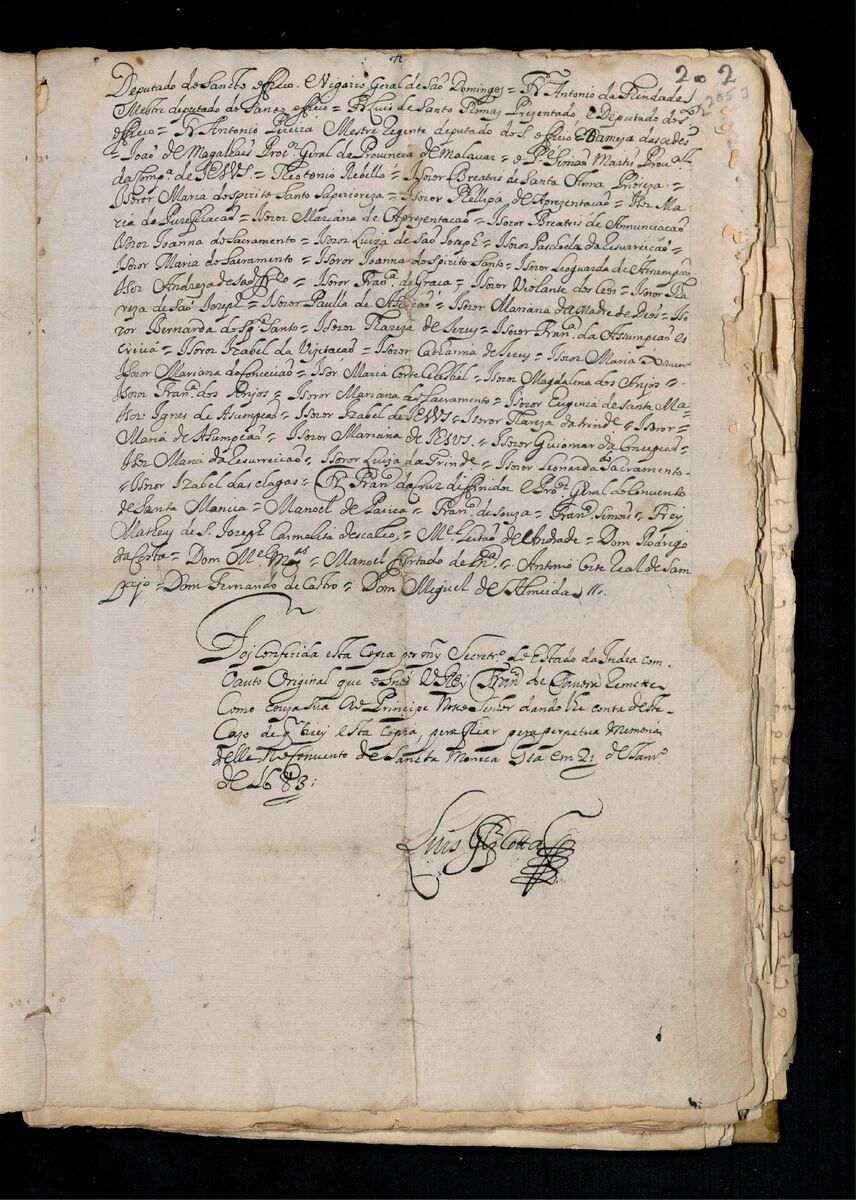 2. 2
2053
Deputado do Sancto officio e Vigario Geral de São Domingos = Fr Antonio da Trindade
Mestre deputado do Santo officio = Fr Luis de Santo Thomas Prezentado e Deputado do Sto
officio = Fr Antonio Pereira Mestre Regente deputado do S. officio
= João de Magalhaẽs Procor Geral da Provincia de Malavar = e Pe Simão Martis Proual
da Compa de JESVS = Theotonio Rebello = Isoror Breatris de Santa Anna Prioreza =
Isoror Maria do spirito Santo Superioreza = Isoror Phellipa de Aprezentação = Isor Ma
ria da Purificação = Isoror Mariana de Aprezentação = Isoror Breatris de Annunciação
Isoror Joanna do Sacramento = Isoror Luiza de São Joseph = Isoror Paschoela da Resurreicão =
Isoror Maria do Sacramento = Isoror Joanna do Spirito Santo = Isoror Leoguarda de Assumpção
Isor Andreza de São = Isoror Franca de Graca = Isoror Violante dos Ceos = Isoror The
reza de São Joseph = Isoror Paulla de Asũcao = Isoror Mariana da Madre de Deos = Iso
ror Bernarda do Spto Santo = Isoror Thareja de Jesus = Isoror Franca da Assumpcão es
crivã = Isoror Izabel da Vizitacão = Isoror Catharina de Jesus = Isoror Maria
Isoror Mariana de Conceicão = Isor Maria Corte Celestial = Isoror Magdalena dos Anjos =
Isoror Franca dos Anjos = Isoror Mariana do Sacramento = Isoror Eugenia de Santa Ma
Isor Ignes de Asumpcão = Isoror Izabel de JESVS = Isoror Thareja da trinde = Isoror
Maria de Asumpcão = Isoror Mariana de JESVS = Isoror Guiomar da Concepcão =
Isor Maria da Resurreicão = Isoror Luiza da Trinde = Isoror Leonarda do Sacramento
= Isoror Izabel das chagas = Fr Franco da Cruz diffinidor e Pror Geral do Convento
de Santa Monica = Manoel de = Franco de Souza = Franco Simois = Frey
Matheus de S. Joseph Carmelita descalco = Mel Leitão de Andrade = Dom Rodrigo
da Costa = Dom Mel = Manoel Furtado de = Antonio Corte Real de Sam
payo = Dom Fernando de Castro = Dom Miguel de Almeida //.
Foj conferida esta Copia per my Secretro do Estado da India com
o auto Original que o Snor V Rey Franco de Tavora Remette
Como couza sua Ao Principe Nosso Senhor dando lhe conta deste
Cazo de q tirej esta Copia, pera ficar pera perpetua Memoria
delle No Convento de Sancta Monica Goa em 21 de Janro
de 1683:
Luis Glz Cotta